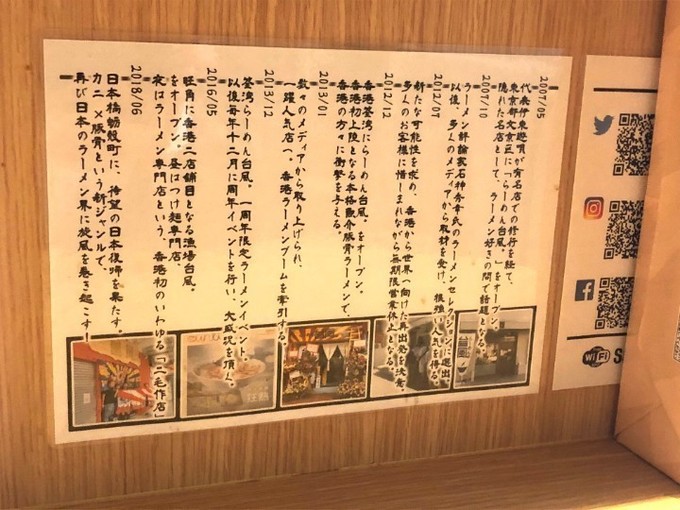 2007/05
代表伊東遼順が有名店での修行を経て、
東京都文京区に「らーめん台風。」をオープン。
隠れた名店として、ラーメン好きの間で話題となる。
2007/10
ラーメン評論家石神秀幸氏のラーメンセレクションに選出。
以後、多くのメディアから取材を受け、根強い人気を得る。
2012/07
新たな可能性を求め、香港から世界へ向けた再出発を決意。
多くのお客様に惜しまれながら無期限営業休止となる。
2012/12
香港荃湾にらーめん台風。をオープン。
香港初上陸となる本格魚介豚骨ラーメンで、
香港の方々に衝撃を与える。
2013/01
数々のメディアから取り上げられ、
一躍人気店へ。香港ラーメンブームを牽引する。
2013/12
荃湾らーめん台風。一周年限定ラーメンイベント。
以後毎年十二月に周年イベントを行い、大盛況を頂く。
2016/05
旺角に香港二店舗目となる漁場台風。
をオープン。昼はつけ麺専門店、
夜はラーメン専門店という、香港初のいわゆる「二毛作店」
2018/06
日本橋蛎殻町に、待望の日本復帰を果たす。
カニ×豚骨という新ジャンルで、
再び日本のラーメン界に旋風を巻き起こす！
WiFi